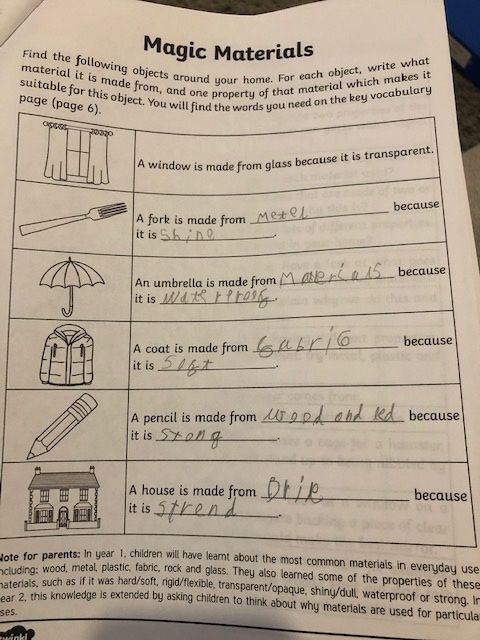 Magic Materials
Find the following objects around your home. For each object, write what
material it is made from, and one property of that material which makes it
suitable for this object. You will find the words you need on the key vocabulary
page (page 6).
A window is made from glass because it is transparent.
A fork is made from metel because
it is Shine.
An umbrella is made from Materials because
it is waterproof.
A coat is made from fabric because
it is Soft.
A pencil is made from wood and led because
it is Stong.
A house is made from Brik because
it is Strend.
Note for parents: In year 1, children will have learnt about the most common materials in everyday use
including: wood, metal, plastic, fabric, rock and glass. They also learned some of the properties of these
materials, such as if it was hard/soft, rigid/flexible, transparent/opaque, shiny/dull, waterproof or strong. In
year 2, this knowledge is extended by asking children to think about why materials are used for particular
uses.
twinkl